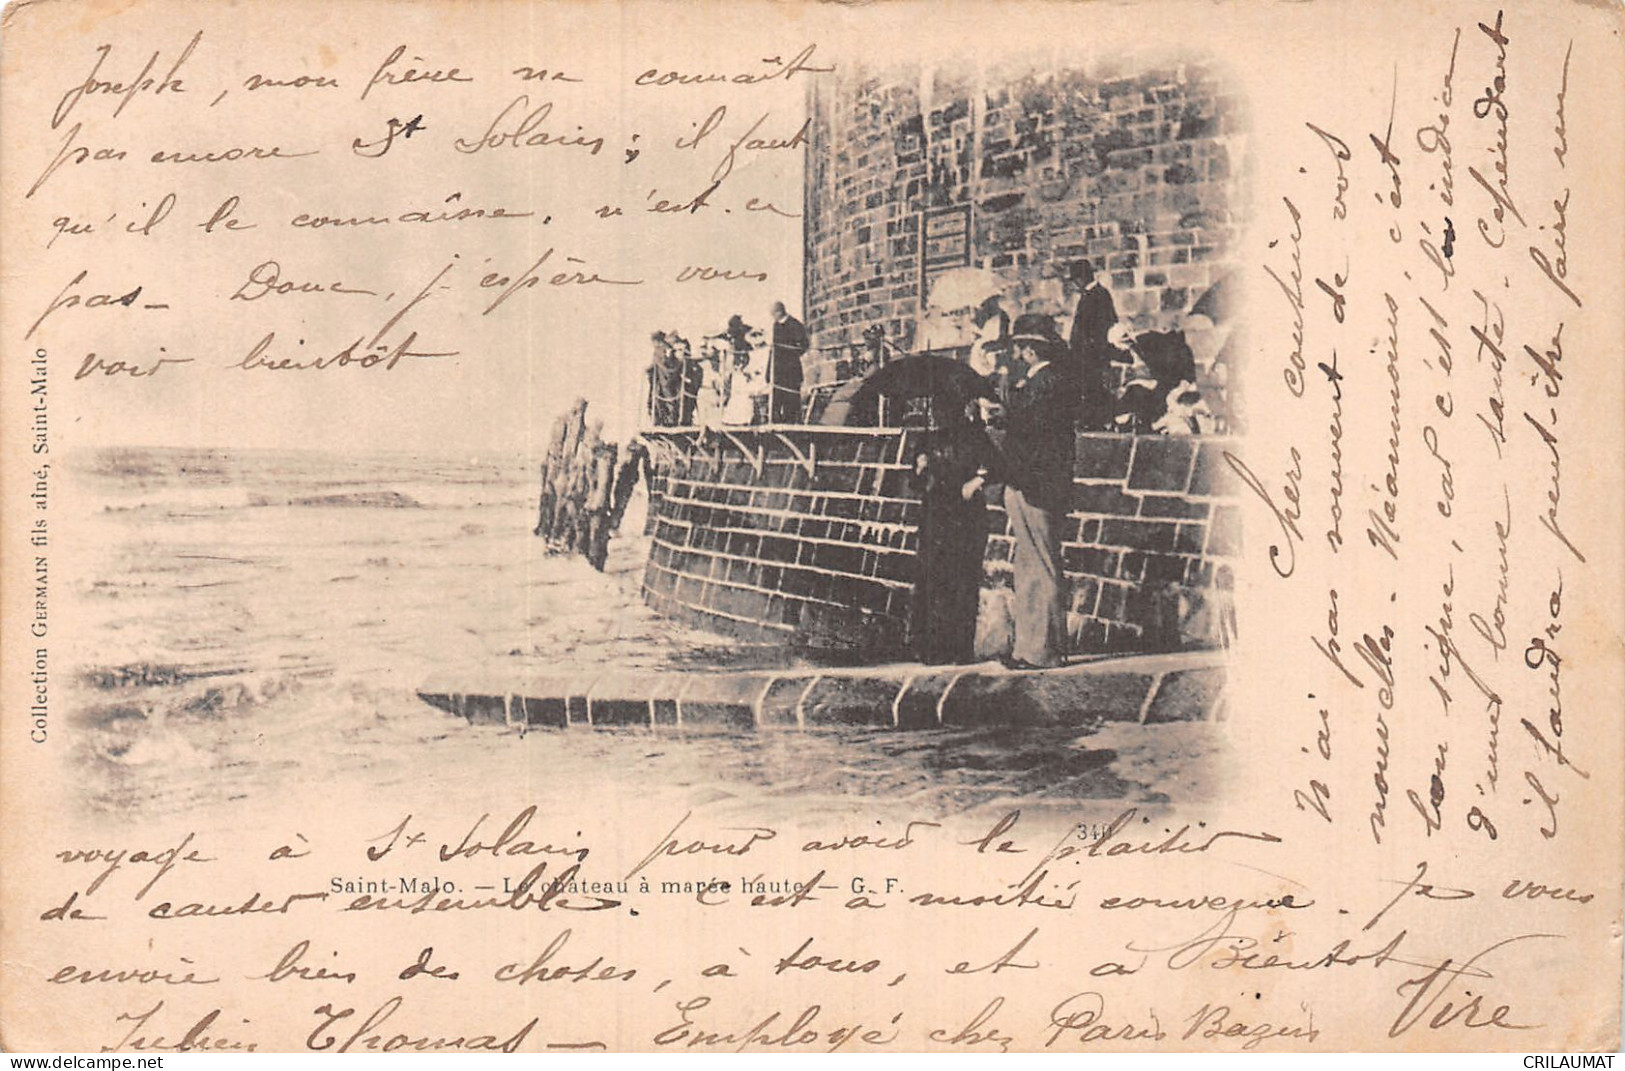 Chers cousins.
N'ai pas souvent de vos
nouvelles. Néanmoins, c'est
bon signe, car c'est l'indice
d'une bonne santé. Cependant
il faudra peut-être faire un
voyage à St Solain pour avoir le plaisir
de causer ensemble. C'est à moitié convenu. Je vous
envoie bien des choses, à tous, et à Bientot
Julien Thomas — Employé chez Paris Bazin Vire
Joseph, mon frère ne connaît
pas encore St Solain; il faut
qu'il le connaisse, n'est-ce
pas— Donc, j'espère vous
voir bientôt
Collection GERMAIN fils aîné, Saint-Malo
340
Saint-Malo. — Le château à marée haute — G. F.
CRILAUMAT